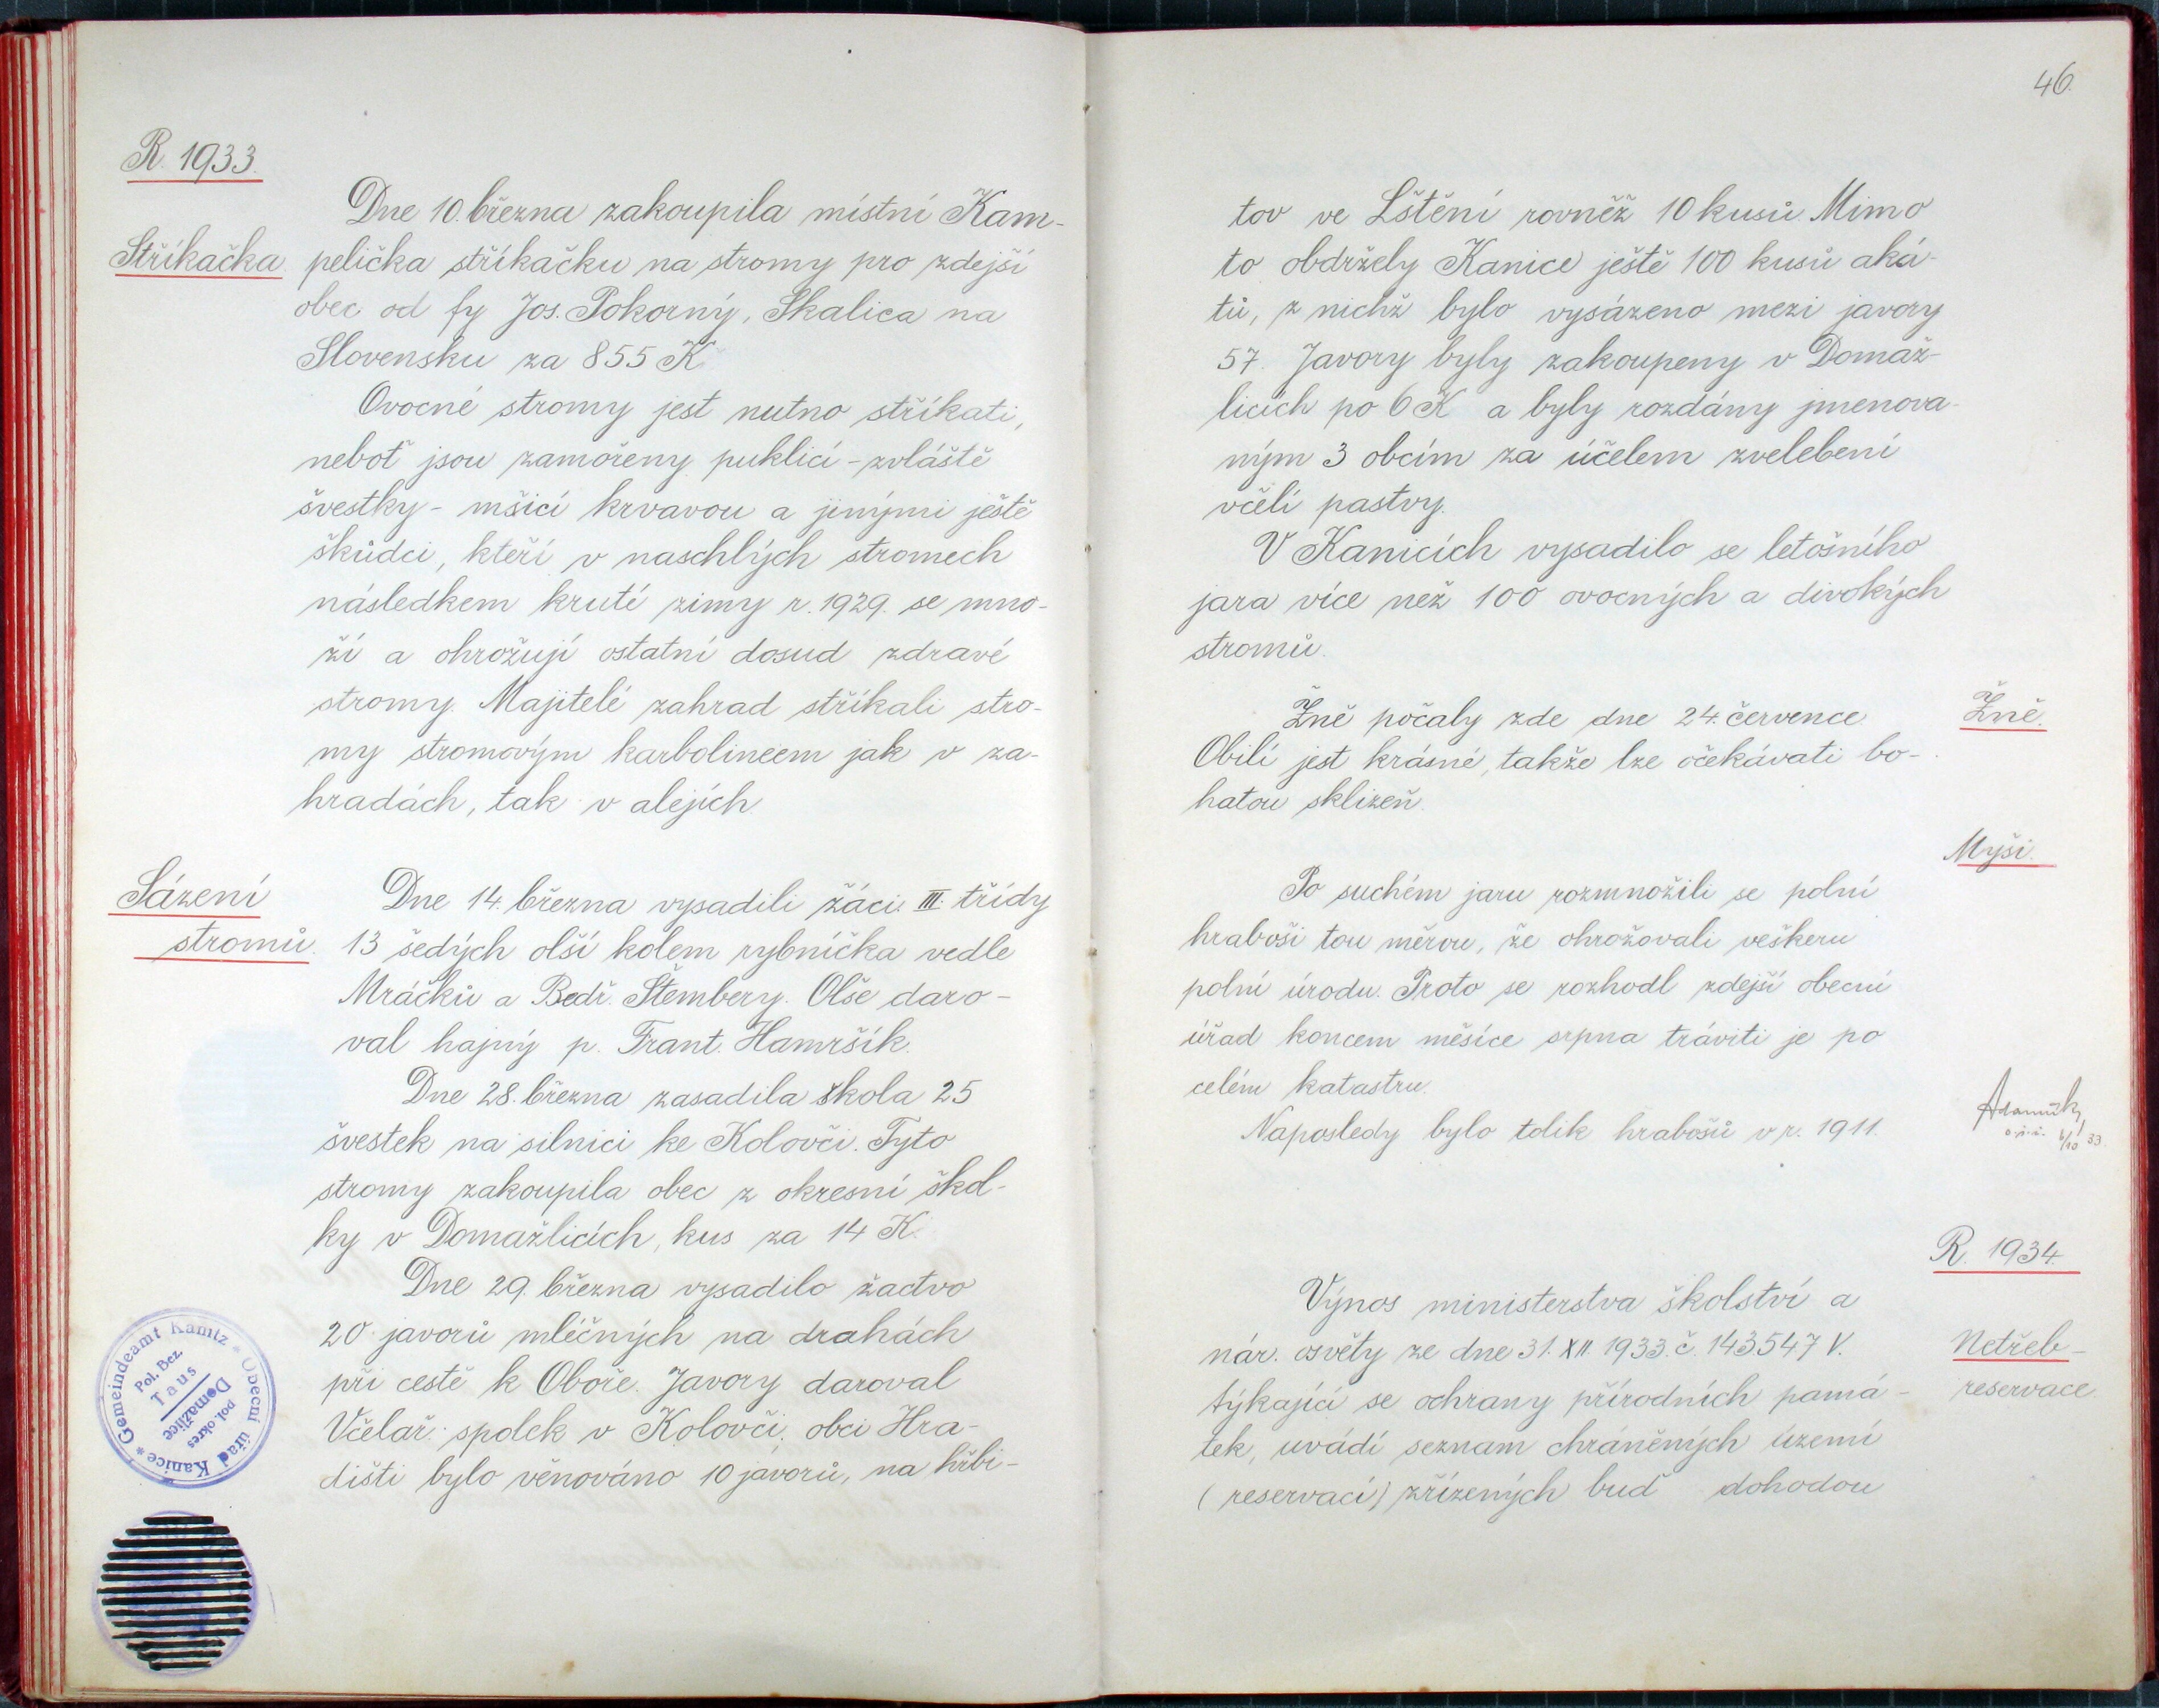 R. 1933.
Dne 10. března zakoupila místní Kam-
Stříkačka pelička stříkačku na stromy pro zdejší
obec od fy Jos. Pokorný, Skalica na
Slovensku za 855 K
Ovocné stromy jest nutno stříkati,
neboť jsou zamořeny puklicí - zvláště
švestky - mšicí krvavou a jinými ještě
škůdci, kteří v naschlých stromech
následkem kruté zimy r. 1929. se mno-
ží a ohrožují ostatní dosud zdravé
stromy. Majitelé zahrad stříkali stro-
my stromovým karbolineem jak v za-
hradách, tak v alejích
Sázení
stromů.
Dne 14. března vysadili žáci III. třídy
13 šedých olší kolem rybníčka vedle
Mráčků a Bedř. Štembery. Olše daro-
val hajný p. Frant. Hamršík.
Dne 28. března zasadila škola 25
švestek na silnici ke Kolovči. Tyto
stromy zakoupila obec z okresní škol-
ky v Domažlicích, kus za 14 K.
Dne 29. března vysadilo žactvo
20 javorů mléčných na drahách
při cestě k Oboře. Javory daroval
Včelař. spolek v Kolovči, obci Hra-
dišti bylo věnováno 10 javorů, na hřbi-
Gemeindeamt Kanitz * Obecní úřad Kanice *
Pol. Bez.
Taus
pol. okres
Domažlice
46.
tov ve Lštění rovněž 10 kusů. Mimo
to obdržely Kanice ještě 100 kusů aká-
tů, z nichž bylo vysázeno mezi javory
57. Javory byly zakoupeny v Domaž-
licích po 6 K a byly rozdány jmenova-
ným 3 obcím za účelem zvelebení
včelí pastvy.
V Kanicích vysadilo se letošního
jara více než 100 ovocných a divokých
stromů.
Žně.
Žně počaly zde dne 24. července
Obilí jest krásné, takže lze očekávati bo-
hatou sklizeň.
Myši.
Po suchém jaru rozmnožili se polní
hraboši tou měrou, že ohrožovali veškeru
polní úrodu. Proto se rozhodl zdejší obecní
úřad koncem měsíce srpna tráviti je po
celém katastru.
Naposledy bylo tolik hrabošů v r. 1911.
33.
R. 1934.
Výnos ministerstva školství a
nár. osvěty ze dne 31. XII 1933. č. 143547 V.
Netřeb -
týkající se ochrany přírodních pamá -
reservace
tek, uvádí seznam chráněných území
(reservací) zřízených buď dohodou